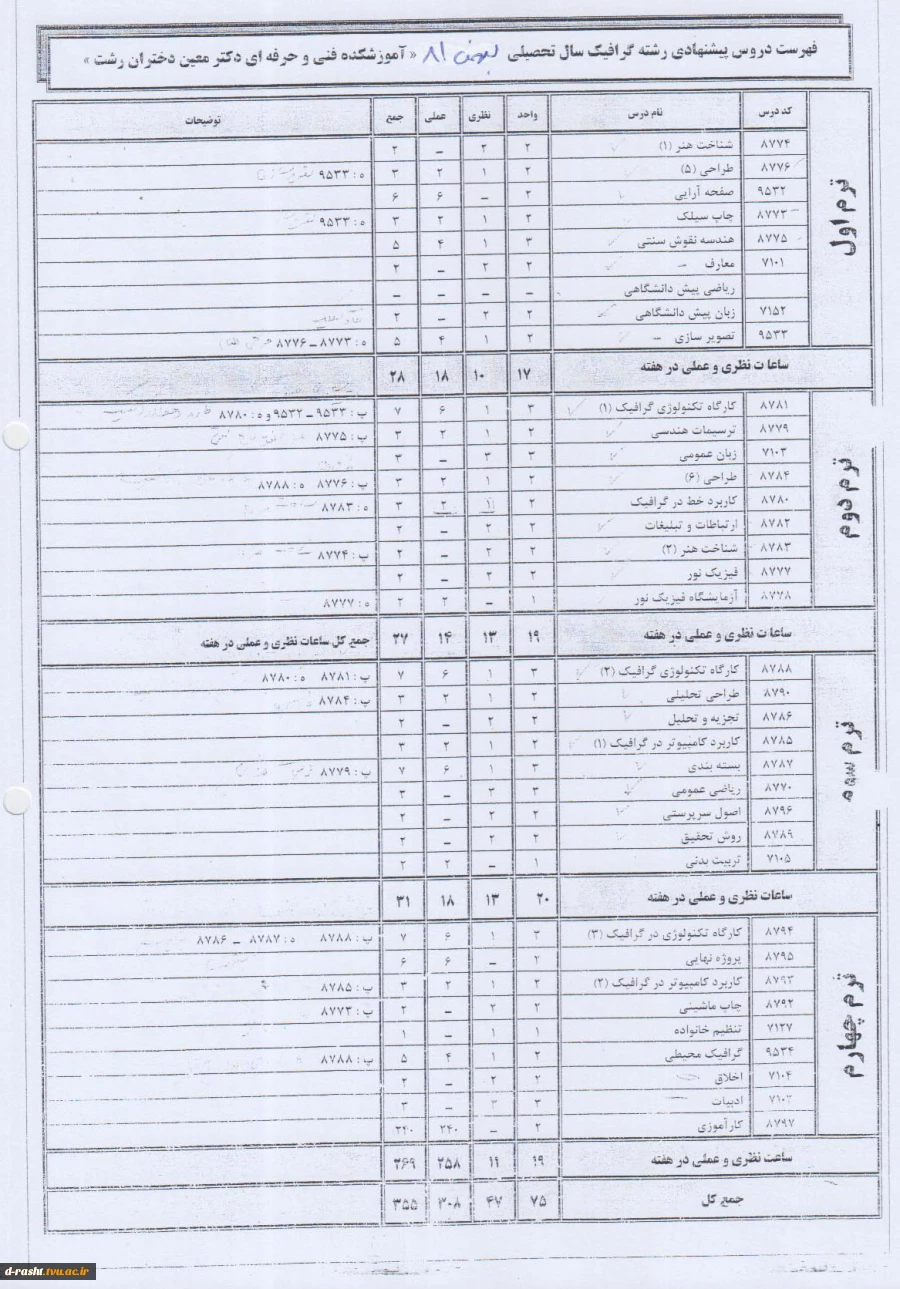 فهرست دروس پیشنهادی رشته گرافیک سال تحصیلی بهمن ۸۱ « آموزشکده فنی و حرفه ای دکتر معین دختران رشت »
کد درس نام درس واحد نظری عملی جمع توضیحات
ترم اول
۸۷۷۴ شناخت هنر (۱) ۲ ۲ – ۲
۸۷۷۶ طراحی (۵) ۲ ۱ ۲ ۳ ه : ۹۵۳۳
۹۵۳۲ صفحه آرایی ۲ – ۶ ۶
۸۷۷۳ چاپ سیلک ۲ ۱ ۲ ۳ ه : ۹۵۳۳
۸۷۷۵ هندسه نقوش سنتی ۳ ۱ ۴ ۵
۷۱۰۱ معارف ۲ ۲ – ۲
ریاضی پیش دانشگاهی – – – –
۷۱۵۲ زبان پیش دانشگاهی ۲ ۲ – ۲
۹۵۳۳ تصویر سازی ۲ ۱ ۴ ۵ ه : ۸۷۷۳ – ۸۷۷۶
ساعات نظری و عملی در هفته ۱۷ ۱۰ ۱۸ ۲۸
ترم دوم
۸۷۸۱ کارگاه تکنولوژی گرافیک (۱) ۳ ۱ ۶ ۷ پ : ۹۵۳۳ – ۹۵۳۲ و ه : ۸۷۸۰
۸۷۷۹ ترسیمات هندسی ۲ ۱ ۲ ۳ پ : ۸۷۷۵
۷۱۰۳ زبان عمومی ۳ ۳ – ۳
۸۷۸۴ طراحی (۶) ۲ ۱ ۲ ۳ پ : ۸۷۷۶ ه : ۸۷۸۸
۸۷۸۰ کاربرد خط در گرافیک ۲ ۱ ۲ ۳ ه : ۸۷۸۳
۸۷۸۲ ارتباطات و تبلیغات ۲ ۲ – ۲
۸۷۸۳ شناخت هنر (۲) ۲ ۲ – ۲ پ : ۸۷۷۴
۸۷۷۷ فیزیک نور ۲ ۲ – ۲
۸۷۷۸ آزمایشگاه فیزیک نور ۱ – ۲ ۲ ه : ۸۷۷۷
ساعات نظری و عملی در هفته ۱۹ ۱۳ ۱۴ ۲۷ جمع کل ساعات نظری و عملی در هفته
ترم سوم
۸۷۸۸ کارگاه تکنولوژی گرافیک (۲) ۳ ۱ ۶ ۷ پ : ۸۷۸۱ ه : ۸۷۸۰
۸۷۹۰ طراحی تحلیلی ۲ ۱ ۲ ۳ پ : ۸۷۸۴
۸۷۸۶ تجزیه و تحلیل ۲ ۲ – ۲
۸۷۸۵ کاربرد کامپیوتر در گرافیک (۱) ۲ ۱ ۲ ۳
۸۷۸۷ بسته بندی ۳ ۱ ۶ ۷ پ : ۸۷۷۹
۸۷۷۰ ریاضی عمومی ۳ ۳ – ۳
۸۷۹۶ اصول سرپرستی ۲ ۲ – ۲
۸۷۸۹ روش تحقیق ۲ ۲ – ۲
۷۱۰۵ تربیت بدنی ۱ – ۲ ۲
ساعات نظری و عملی در هفته ۲۰ ۱۳ ۱۸ ۳۱
ترم چهارم
۸۷۹۴ کارگاه تکنولوژی در گرافیک (۳) ۳ ۱ ۶ ۷ پ : ۸۷۸۸ ه : ۸۷۸۷ – ۸۷۸۶
۸۷۹۵ پروژه نهایی ۲ – ۶ ۶
۸۷۹۳ کاربرد کامپیوتر در گرافیک (۲) ۲ ۱ ۲ ۳ پ : ۸۷۸۵
۸۷۹۲ چاپ ماشینی ۲ ۲ – ۲ پ : ۸۷۷۳
۷۱۲۷ تنظیم خانواده ۱ ۱ – ۱
۹۵۳۴ گرافیک محیطی ۲ ۱ ۴ ۵ پ : ۸۷۸۸
۷۱۰۴ اخلاق ۲ ۲ – ۲
۷۱۰۲ ادبیات ۳ ۳ – ۳
۸۷۹۷ کارآموزی ۲ – ۲۴۰ ۲۴۰
ساعت نظری و عملی در هفته ۱۹ ۱۱ ۲۵۸ ۲۶۹
جمع کل ۷۵ ۴۷ ۳۰۸ ۳۵۵
d-rasht.tvu.ac.ir